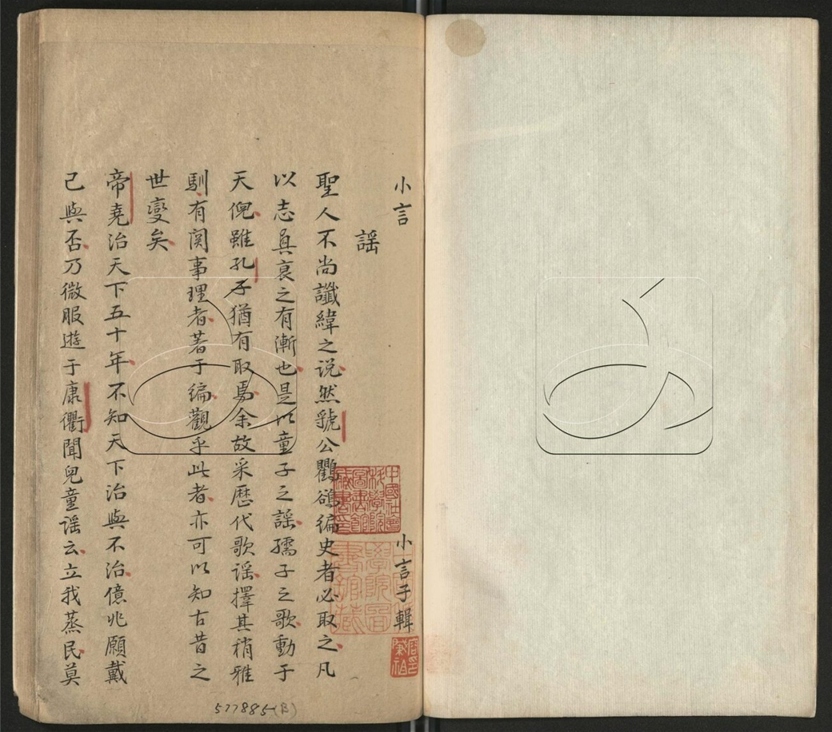 小言　小言子輯
謡
聖人不尚讖緯之説然虢公鸜鵒編史者必取之凡
以志真衰之有漸也是以童子之謡孺子之歌動于
天倪雖孔子猶有取焉余故采歷代歌謡擇其稍雅
馴有関事理者著于编觀乎此者亦可以知古昔之
世變矣
帝堯治天下五十年不知天下治與不治億兆願戴
己與否乃微服遊于康衢聞兒童謡云立我蒸民莫
577885(B)